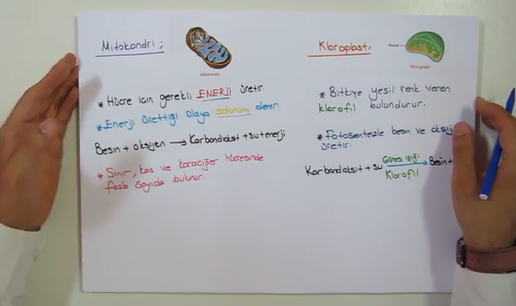 Mitokondri ;
* Hücre için gerekli ENERJİ üretir.
* Enerji ürettiği olaya solunum denir.
Besin + oksijen → Karbondioksit + su + enerji
* Sinir, kas ve karaciğer hücresinde
fazla sayıda bulunur.
Kloroplast ;
* Bitkiye yeşil renk veren
klorofil bulundurur.
* Fotosentezle besin ve
üretir.
Karbondioksit + su Güneş ışığı → Besin +
Klorofil